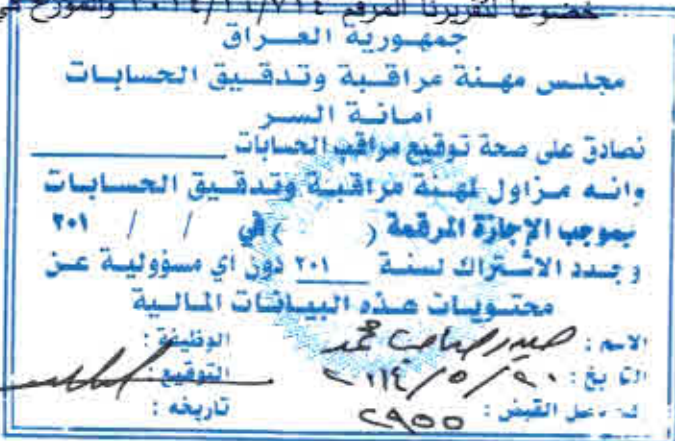 خضوعاً لتقريرنا المرقم ٢٠١٤/١١/٧١٤ والمورخ في
جمهورية العراق
مجلس مهنة مراقبة وتدقيق الحسابات
امانة السر
نصادق على صحة توقيع مراقب الحسابات
وانه مزاول لمهنة مراقبة وتدقيق الحسابات
بموجب الإجازة المرقمة ( ) في / / ٢٠١
وجدد الاشتراك لسنة ٢٠١ دون اي مسؤولية عن
محتويات هذه البيانات المالية
الاسم : حيدر صاحب محمد الوظيفة :
التاريخ : ٢٠١٤/٥/٢٠ التوقيع :
القبض : ٢٩٥٥ تاريخه :